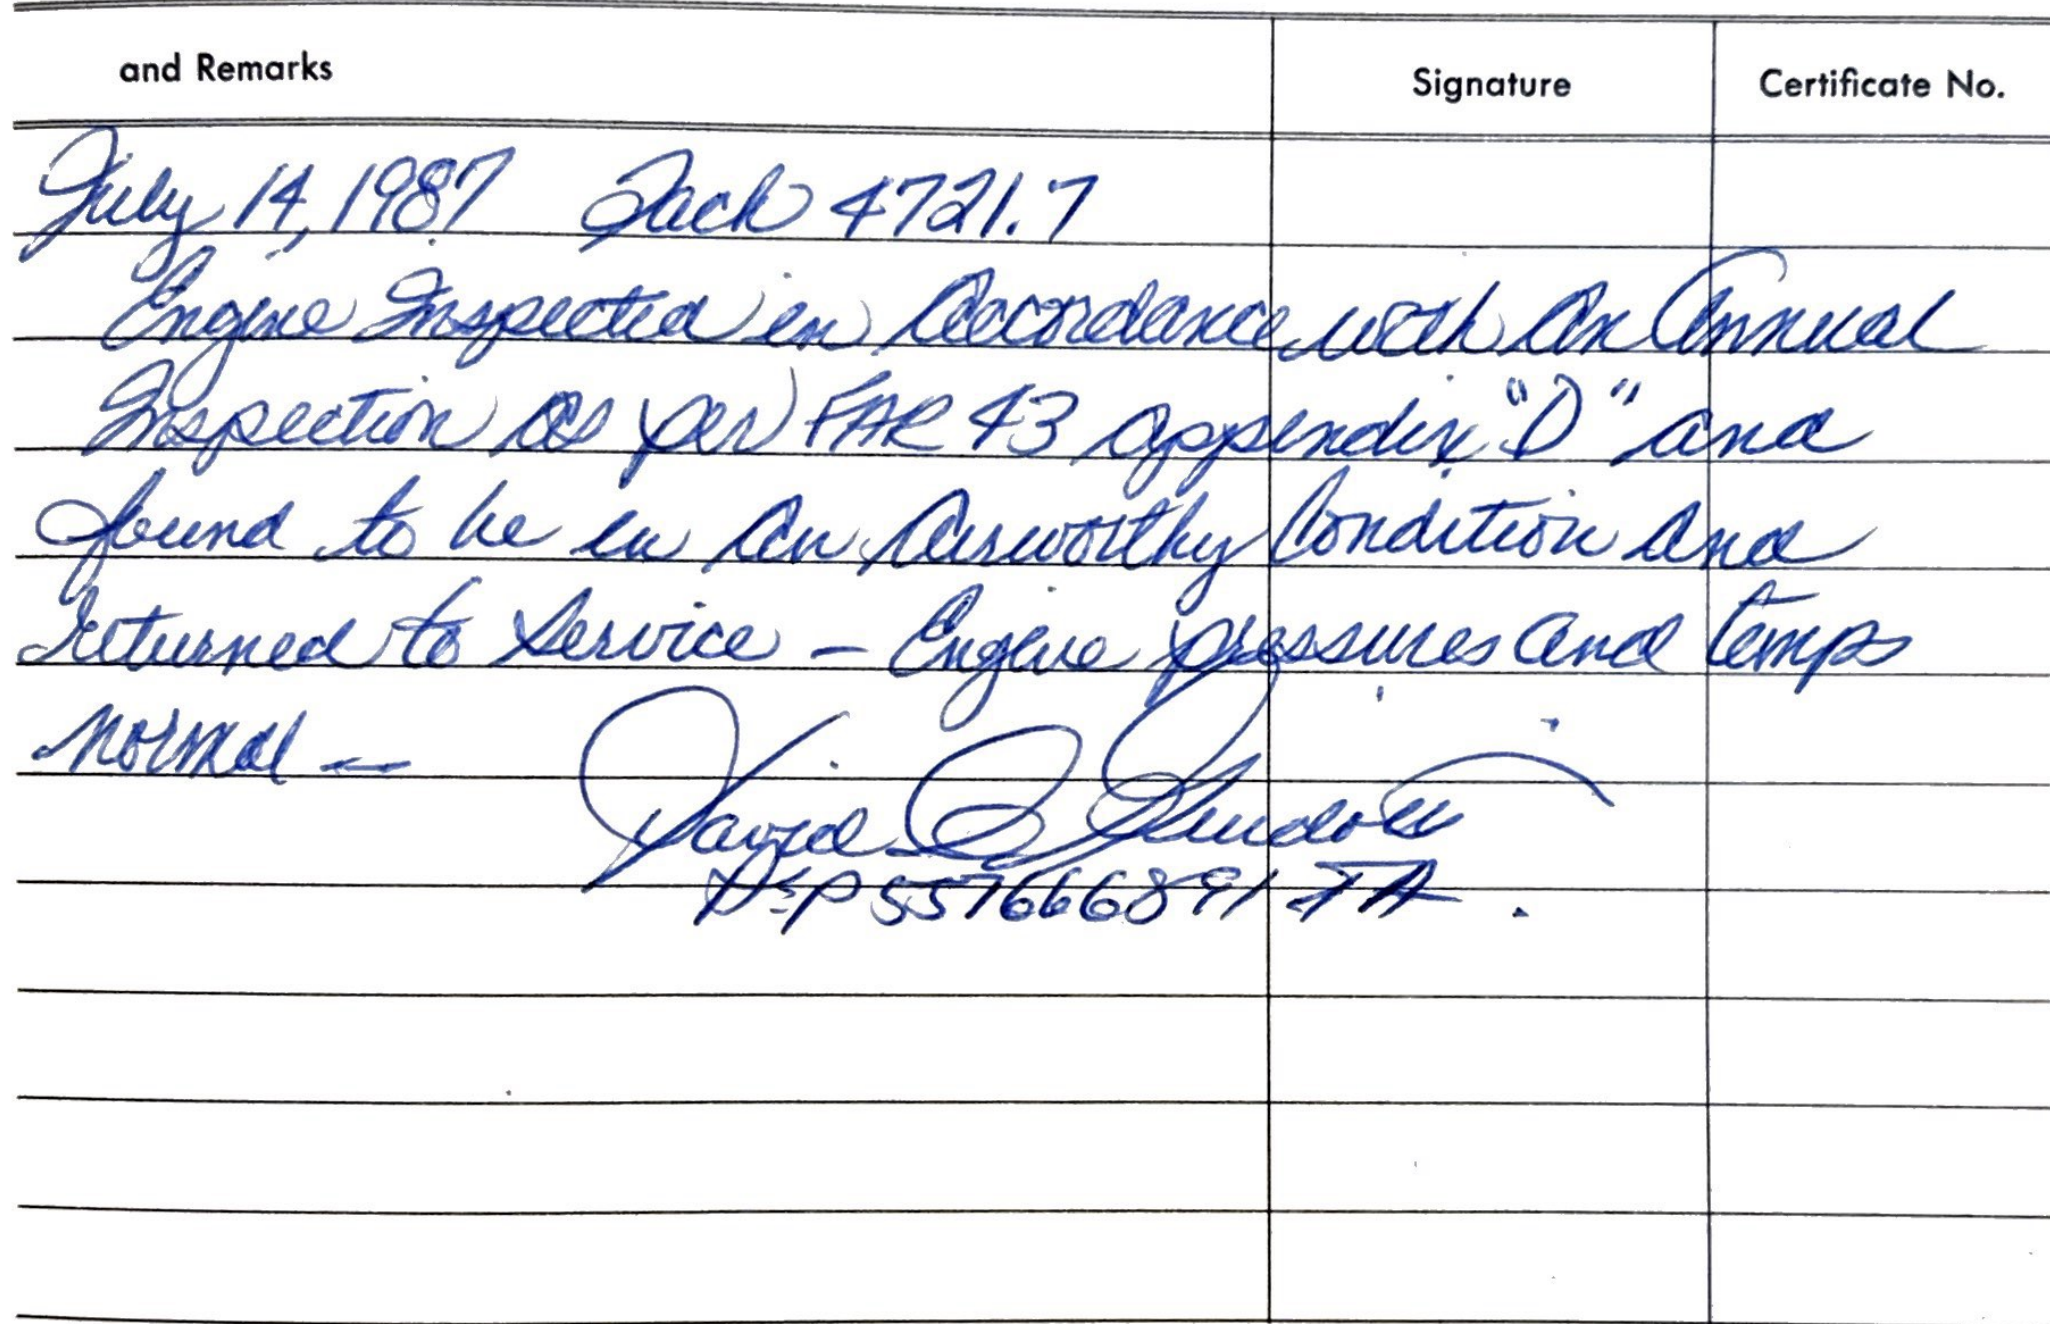 and Remarks Signature Certificate No.
July 14, 1987 Tach 4721.7
Engine Inspected in Accordance with An Annual
Inspection As per FAR 43 appendix "D" and
found to be in An Airworthy Condition And
returned to Service - Engine pressures and temps
normal —
David
A&P 557666891 IA.